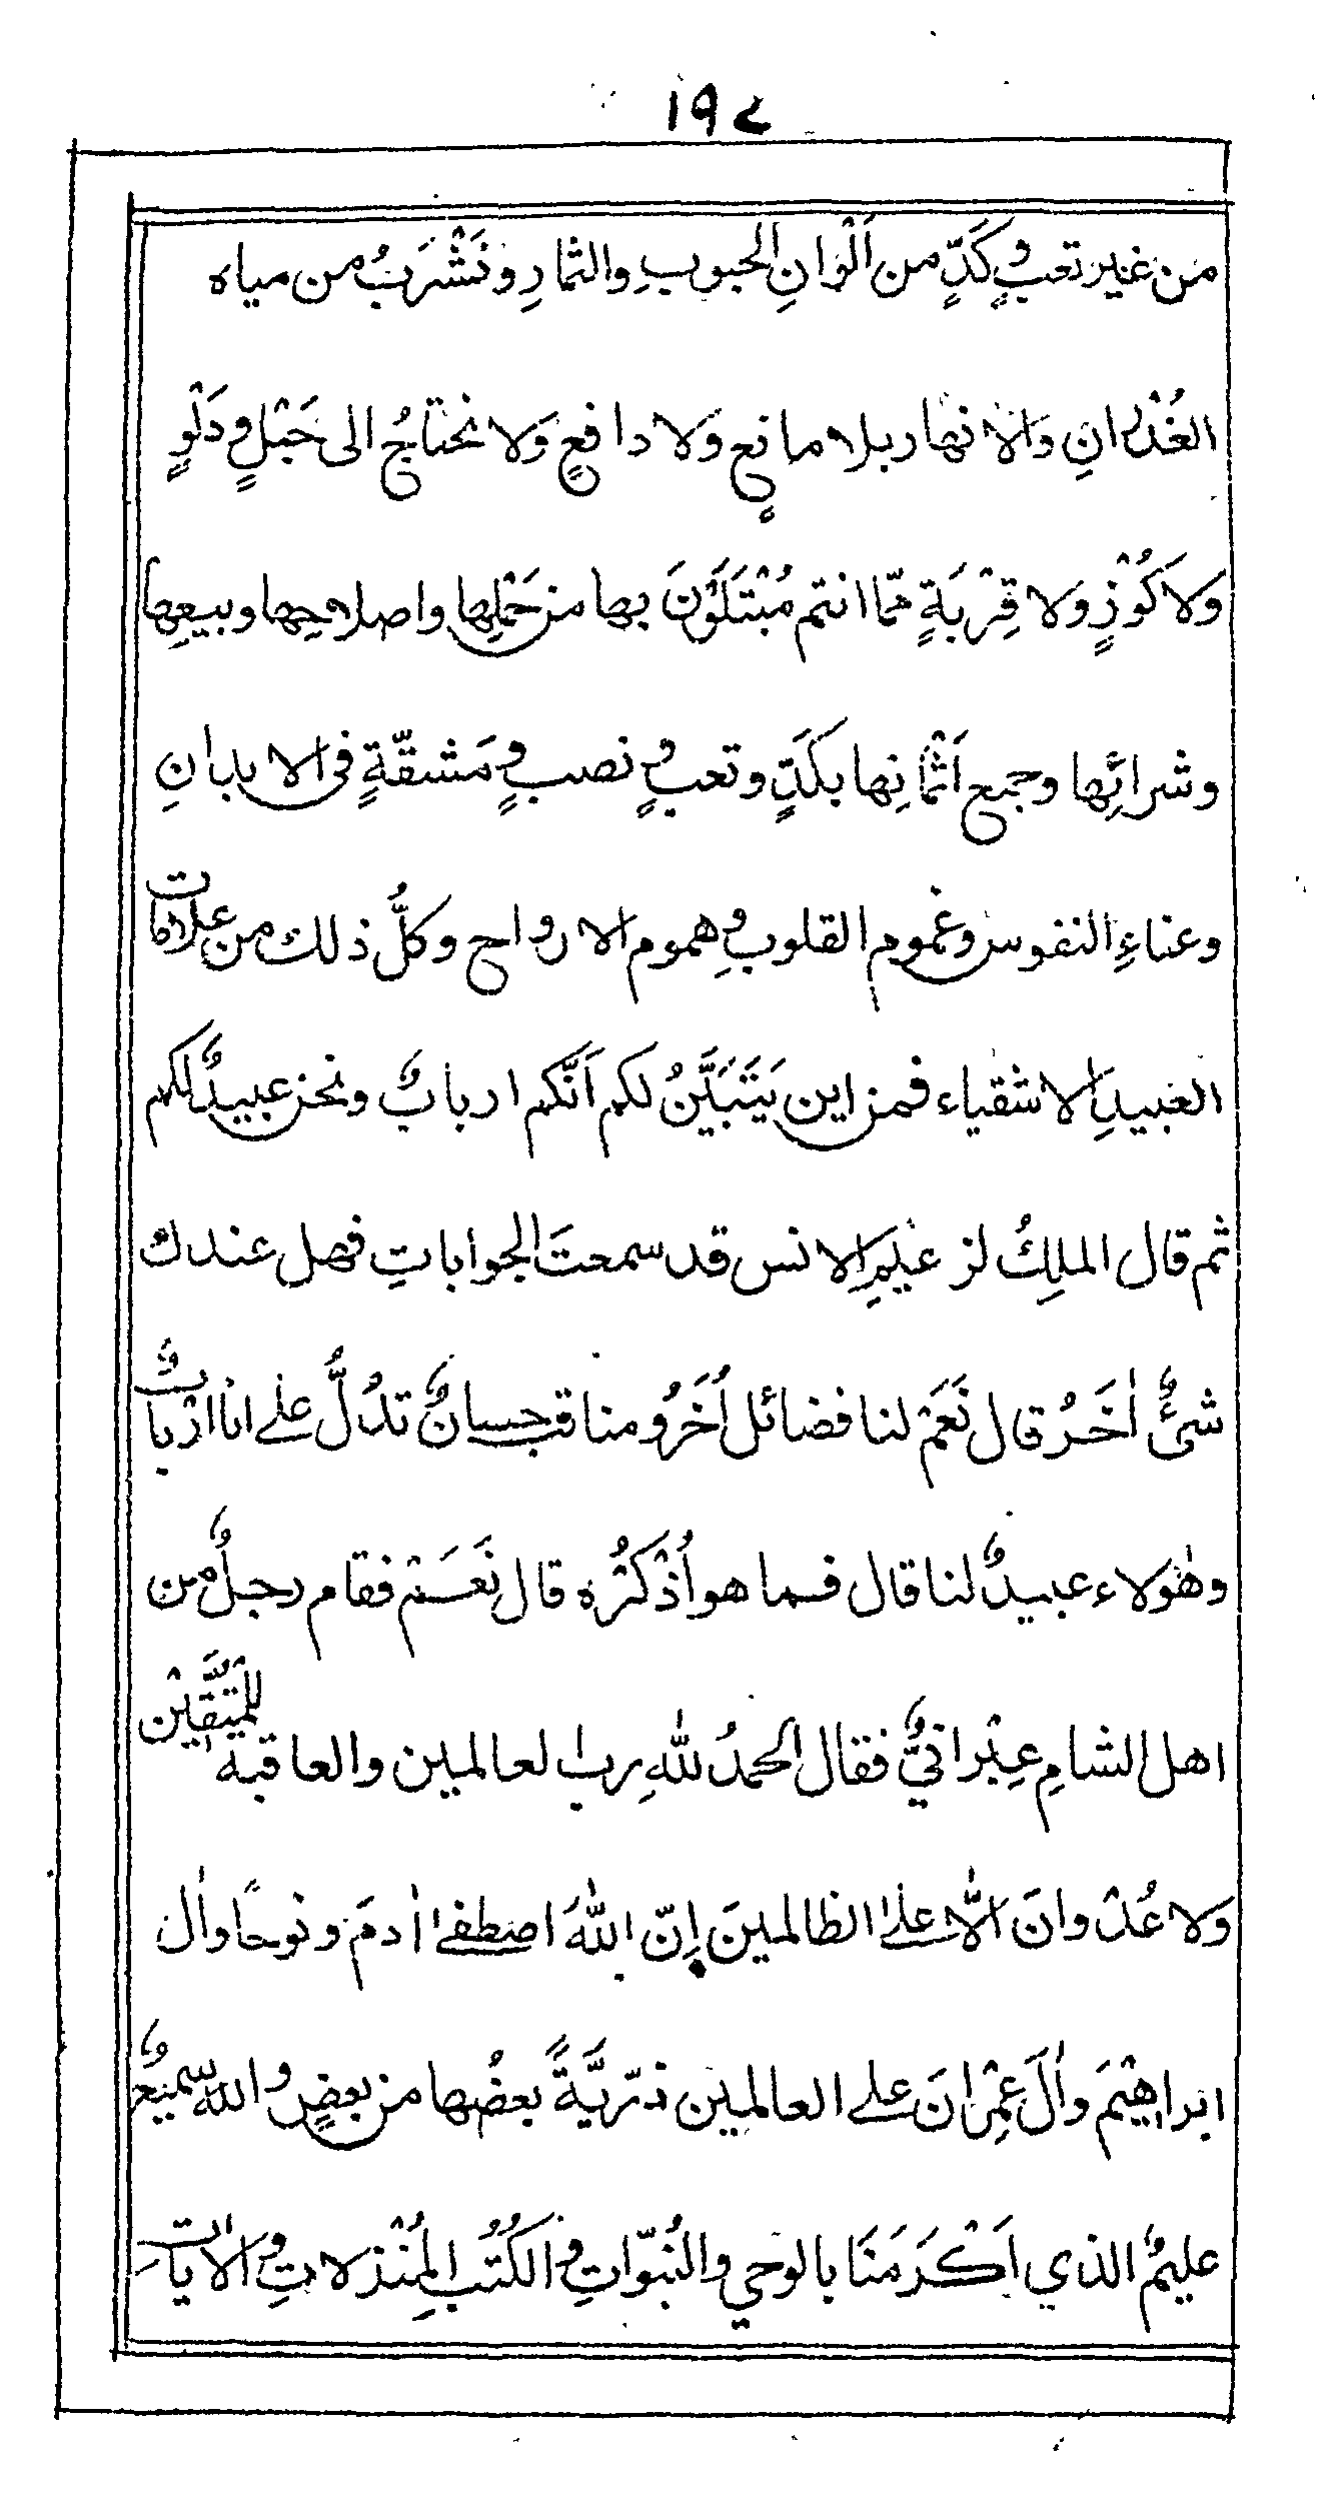 ١٩٤
من غير تعبٍ وكَدٍّ من اَلْوَانِ الحبوبِ والثمارِ ونَشْرَبُ من مياه
الغُدْرانِ وَالانهار بلا مانعٍ وَلا دافعٍ وَلا نحتاجُ الى حَبْلٍ و دَلْوٍ
وَلا كُوْزٍ وَلا قِرْبَةٍ ممّا انتم مُبْتَلَوْنَ بها من حَمْلِها واصلاحِها وبيعِها
وشرائِها وجمع اَثْمَانِها بكَدٍّ وتعبٍ و نصبٍ و مَشقّةٍ فى الابدانِ
وعناءِ النفوس وغموم القلوبِ و هموم الارواح وكلُّ ذلك من علامات
العبيدِ الاشقياء فمن اين يَتَبَيَّنُ لكم اَنَّكم اربابٌ ونحن عبيدٌ لكم
ثم قال الملِكُ لزعيمِ الانس قد سمعتَ الجواباتِ فهل عندك
شئٌ اٰخَرُ قال نَعَمْ لنا فضائل اُخَرُ و مناقب حِسانٌ تدُلُّ على انا اربابٌ
وهٰؤلاء عبيدٌ لنا قال فما هو اُذْكُرْه قال نَعَمْ فقام رجلٌ من
اهل الشامِ عِبْرانيٌّ فقال الحمدُ للّٰهِ رب العالمين والعاقبة للمُتَّقِيْن
وَلا عُدْوانَ الّا على الظالمينَ اِنّ اللّٰهَ اصطفى اٰدمَ ونوحًا واٰل
ابراهيْمَ واٰلَ عِمْرانَ على العالمين ذرّيَّةً بعضُها من بعضٍ و اللّٰه سميعٌ
عليمٌ الذي اَكْرَمَنَا بالوحي والنُبوّاتِ و الكُتُبِ المُنْزلاتِ و الاٰيات